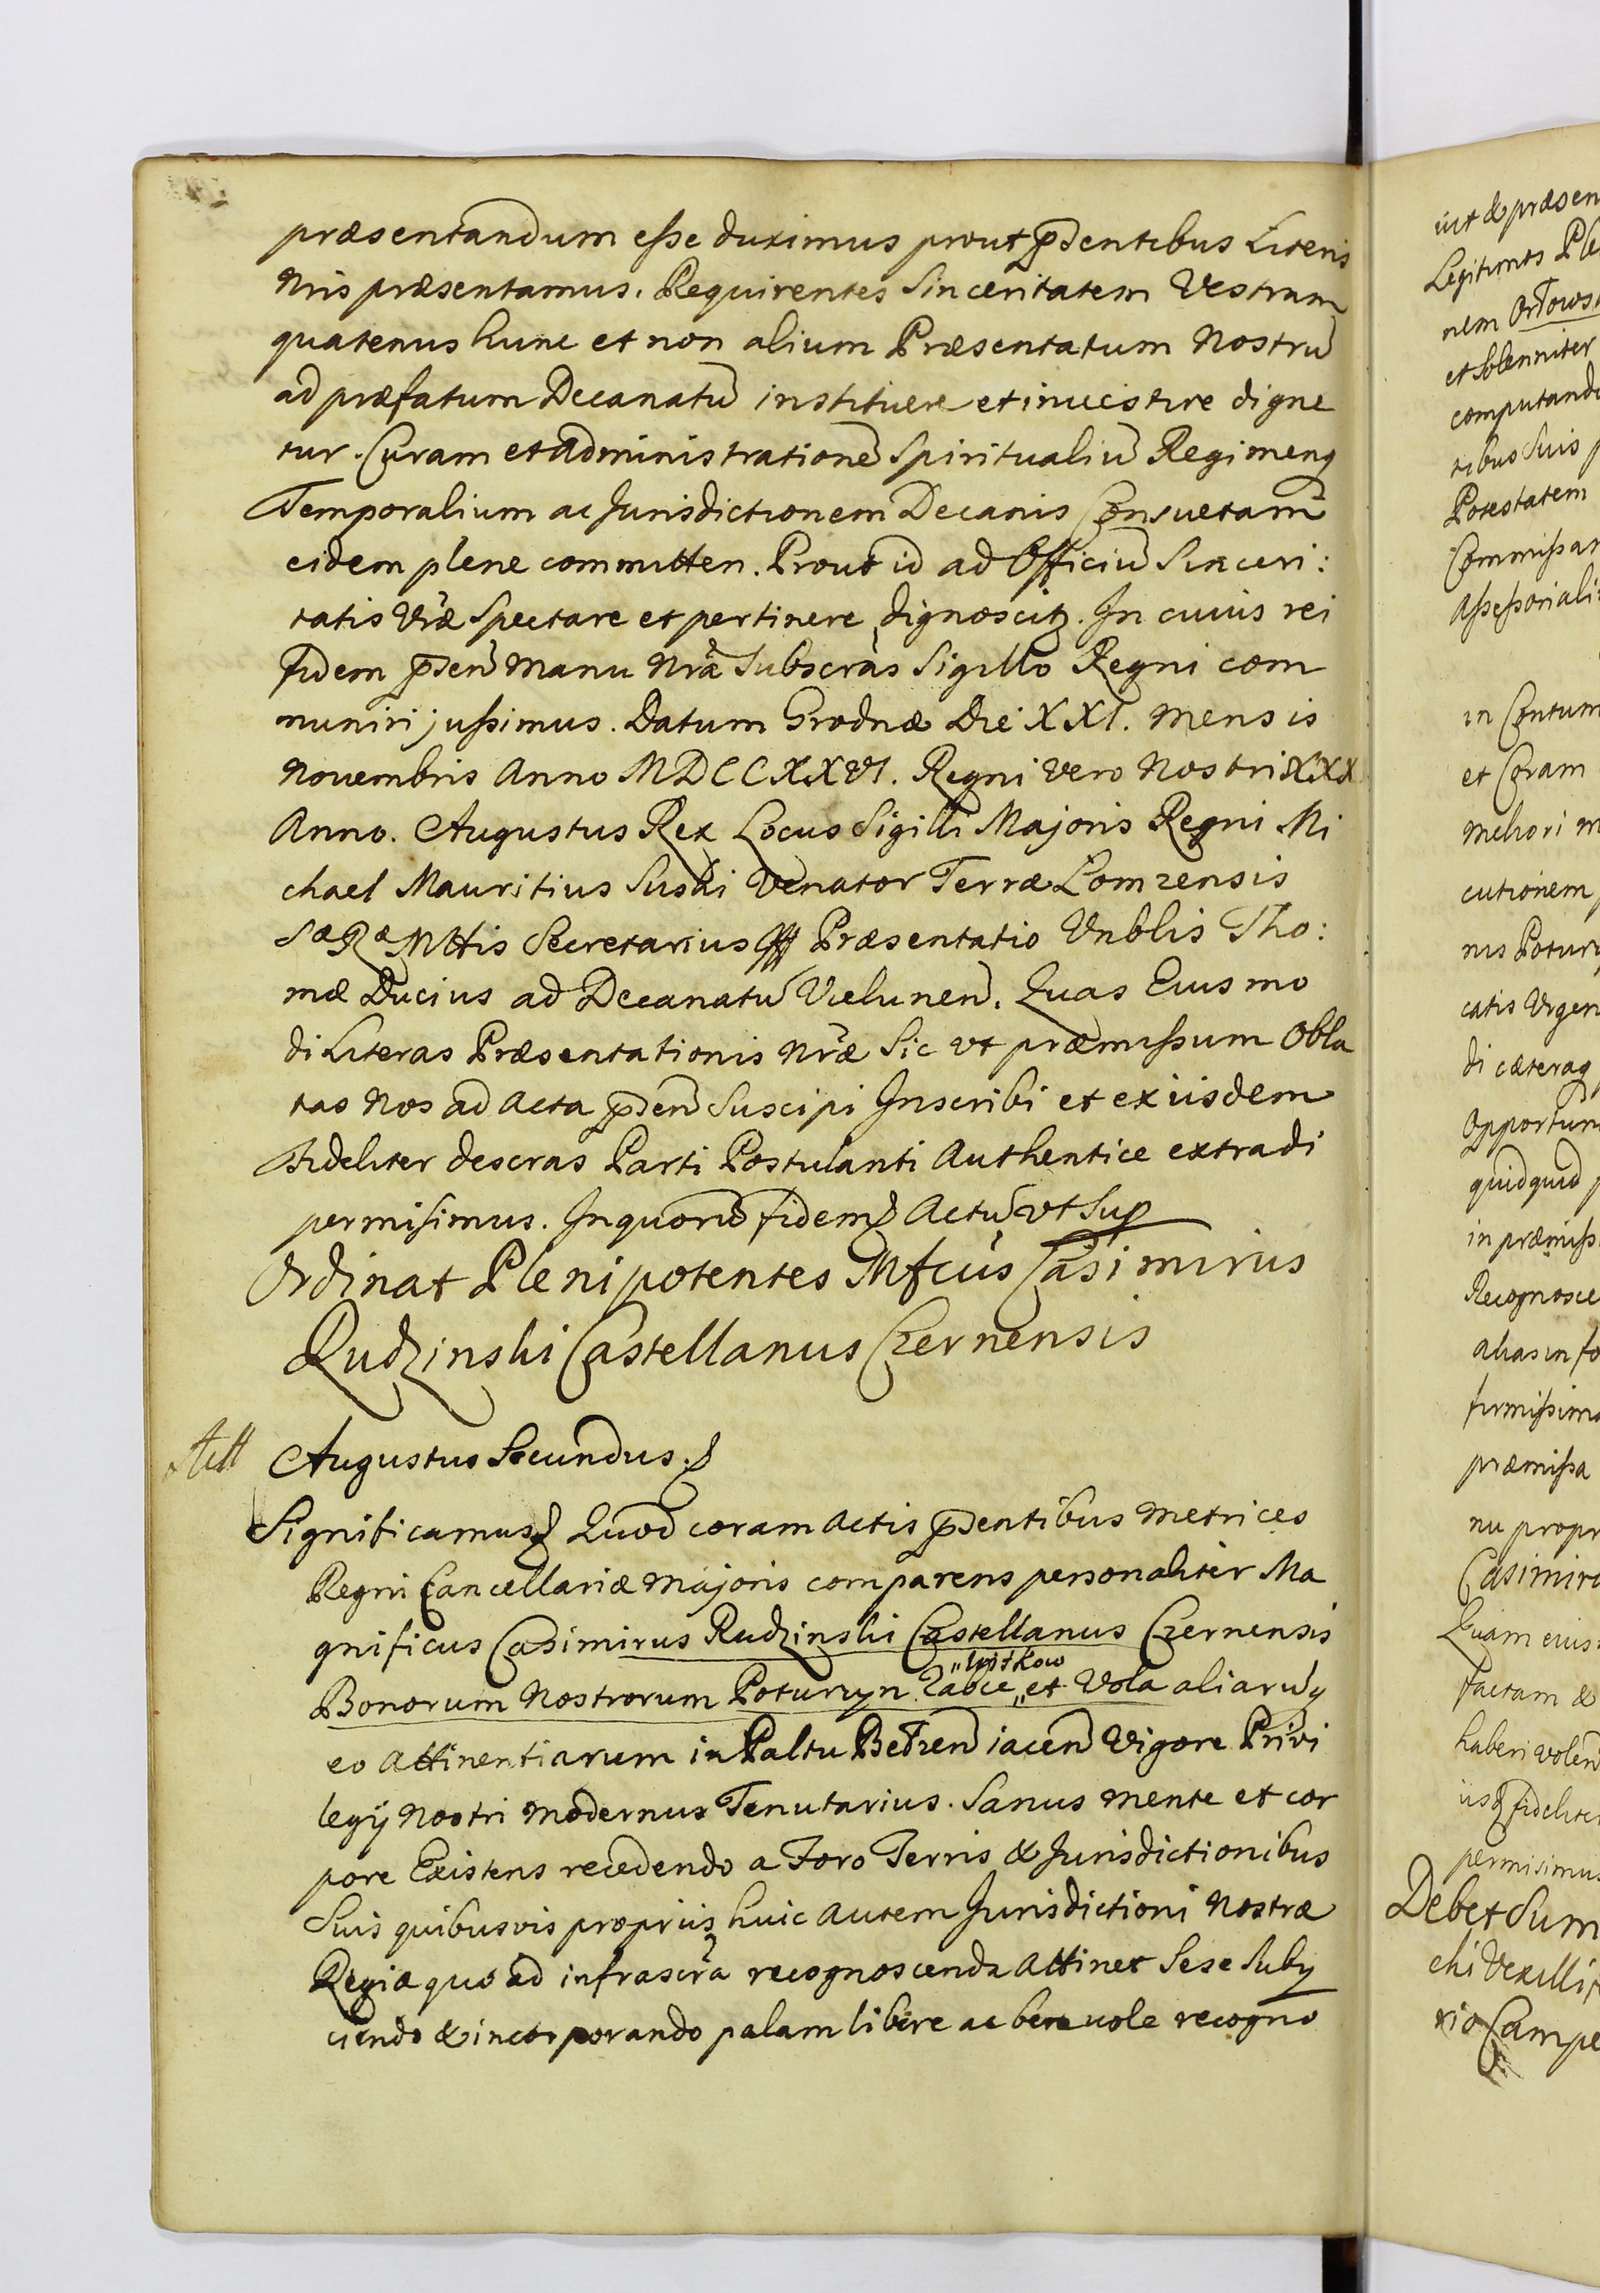 præsentandum esse duximus prout p̃sentibus Literis
Nris præsentamus. Requirentes Sinceritatem Vestram
quatenus hunc et non alium Præsentatum Nostrũ
ad præfatum Decanatũ instituere et inuestire digne
tur. Curam et Administrationẽ Spiritualiũ Regimenq
Temporalium ac Jurisdictionem Decanis Consuetam
eidem plene committen. Prout id ad Officiũ Sinceri:
tatis Vræ Spectare et pertinere dignoscitʒ. In cuius rei
fidem p̃sen Manu Nrã Subscras Sigillo Regni com
muniri jussimus. Datum Grodnæ Die XXI. Mensis
Novembris Anno MDCCXXVI. Regni vero Nostri XXX
Anno. Augustus Rex Locus Sigilli Majoris Regni Mi
chael Mauritius Suski Venator Terræ Lomzensis
Sæ Ræ Mttis Secretarius Præsentatio Vnblis Tho:
mæ Ducius ad Decanatũ Vielunen. Quas Eius mo
di Literas Præsentationis Nræ Sic vt præmissum Obla
tas Nos ad Acta p̃sen Suscipi Inscribi et exiisdem
Fideliter descras Parti Postulanti Authentice extradi
permisimus. In quorũ fidem Actũ vt Sup
Ordinat Plenipotentes Mfcus Casimirus
Rudzinski Castellanus Czernensis
Augustus Secundus.
Significamus Quod coram Actis p̃sentibus Metrices
Regni Cancellariæ Majoris comparens personaliter Ma
gnificus Casimirus Rudzinski Castellanus Czernensis
Witkow
Bonorum Nostrorum Poturzyn Zabcze et Vola aliarũq
eo Attinentiarum in Paltu Bełzen iacen Vigore Privi
legij Nostri Modernus Tenutarius. Sanus mente et cor
pore Existens recedendo a Foro Terris & Jurisdictionibus
Suis quibusvis proprijs huic autem Jurisdictioni Nostræ
Regiæ quo ad infrascra recognoscenda Attinet Sese Subij
ciendo & incorporando palam libere ac beneuole recogno
iut & præsen
Legitimos Ple
nem Orłows
et Solenniter
computand
ribus Suis p
Potestatem
Commissar
Assessoriali
in Contum
et Coram
meliori m
cutionem p
nis Poturz
catis Vrgen
di cæteraq
Opportun
quidquid p
in præmiss
Recognosce
alias in fo
firmissim
præmissa
nu propr
Casimir
Quam eius
factam &
haberi volen
iisq fideliter
permisimus
Debet Sum
chi Vexillif
rio Campe